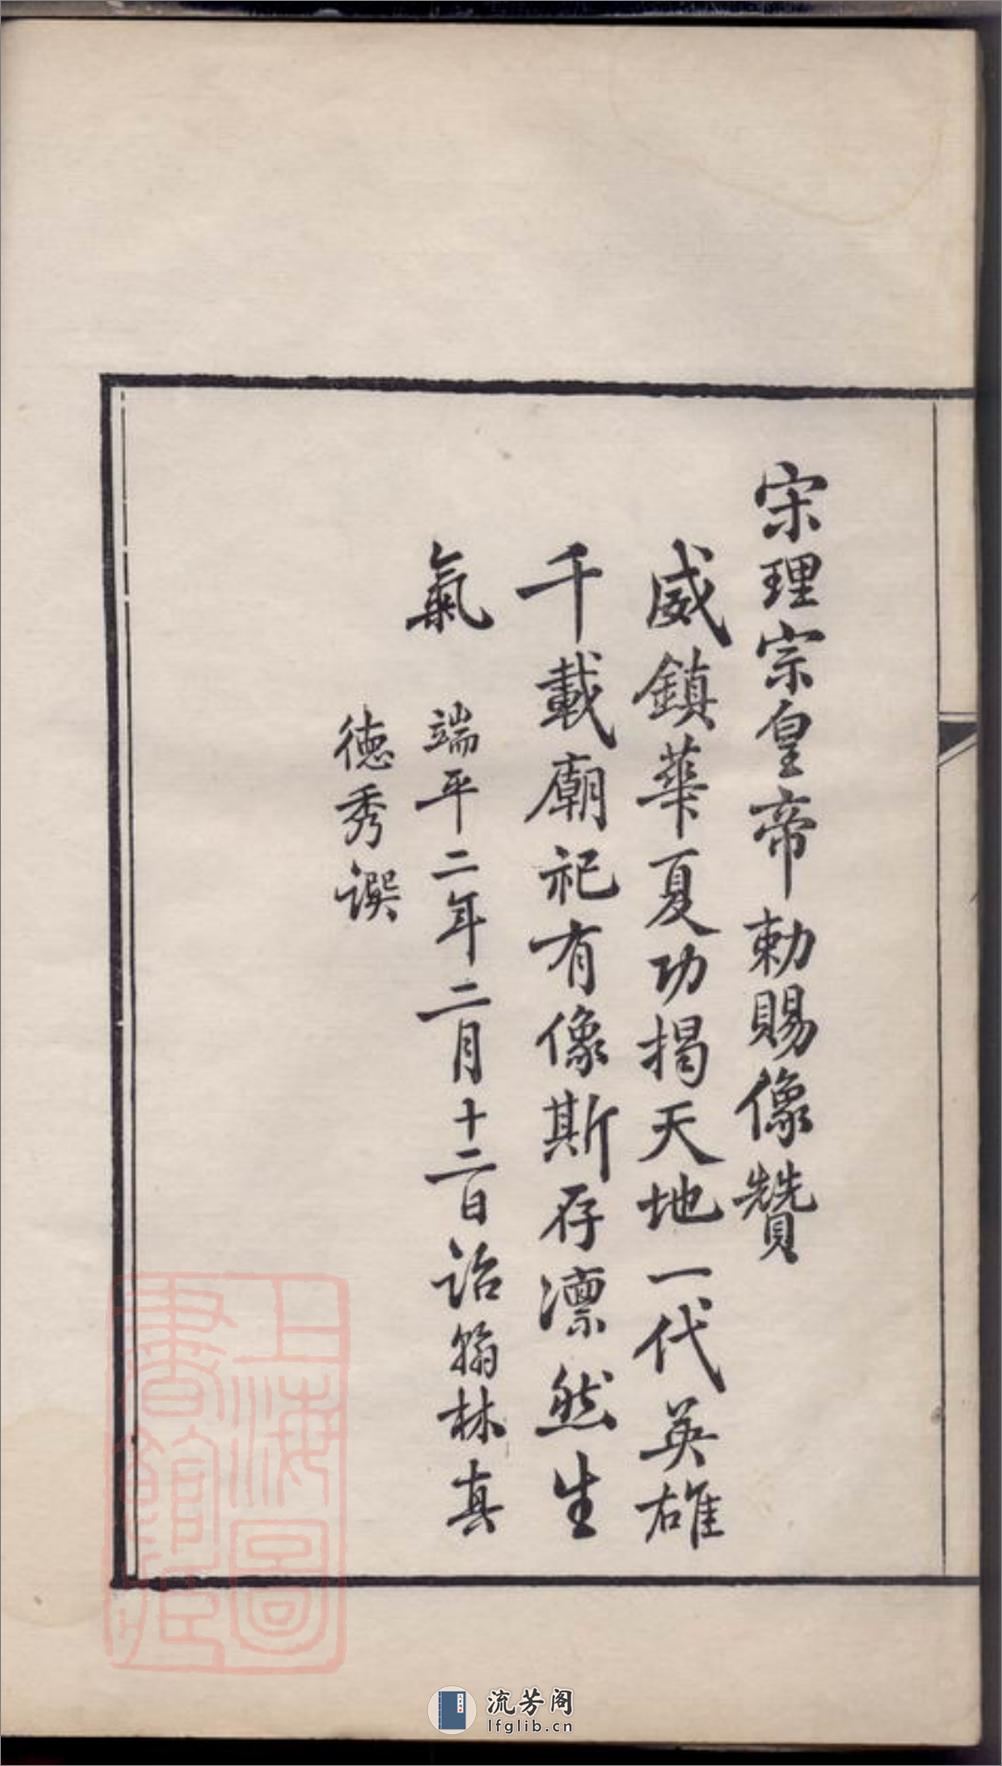 宋理宗皇帝勅賜像贊
威鎮華夏功揭天地一代英雄
千載廟祀有像斯存凛然生
氣
端平二年二月十二日詔翰林真
德秀譔
上海圖
書館藏
流芳阁
lfglib.cn